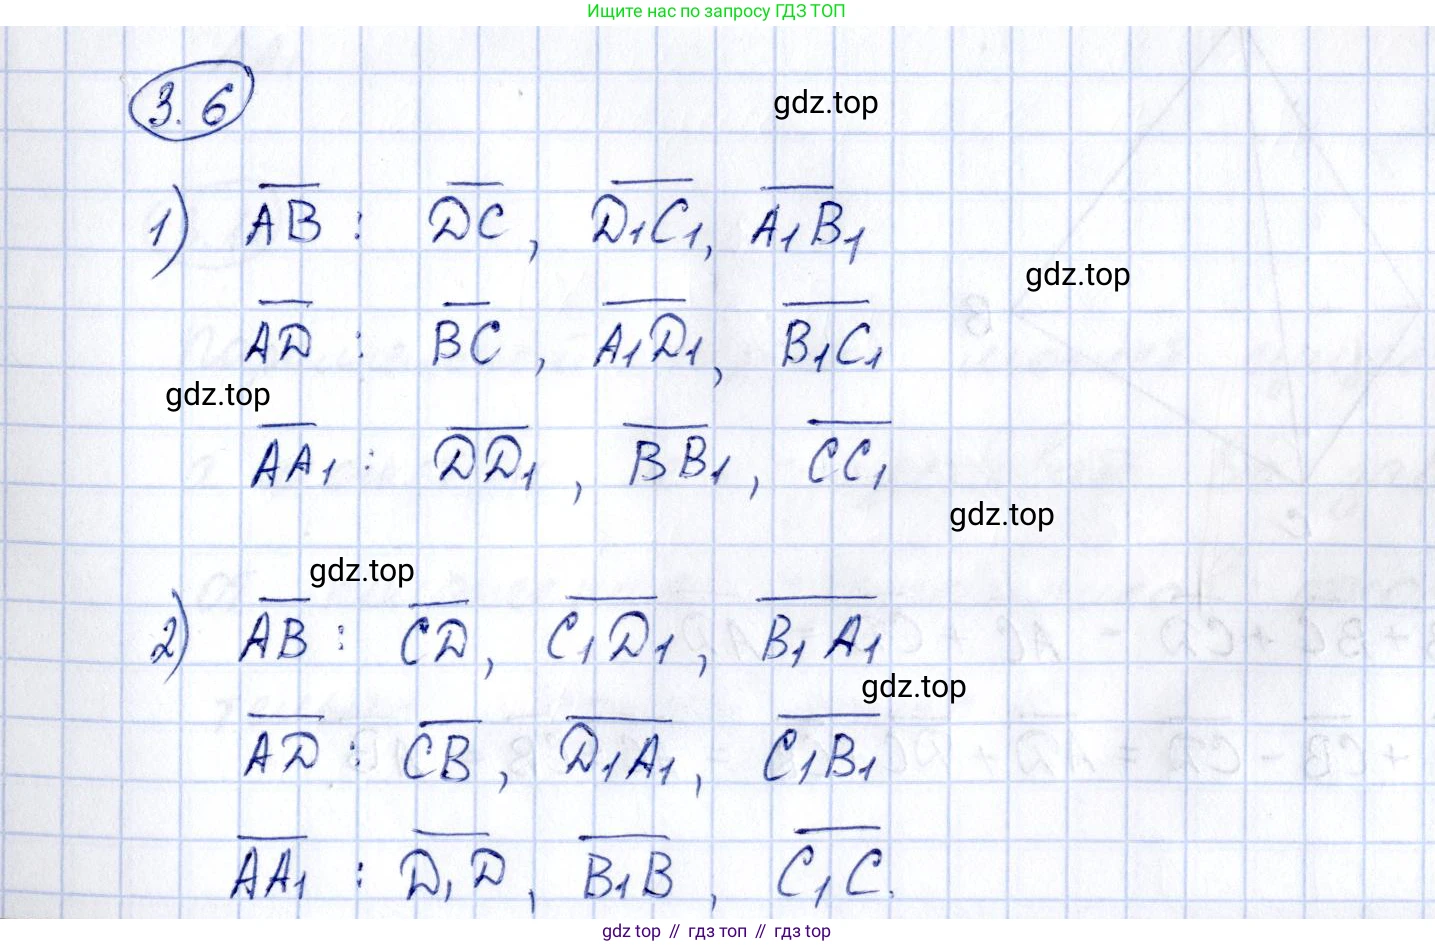 Ищите нас по запросу ГДЗ ТОП
3.6
gdz.top
1) A̅B̅ : D̅C̅, D̅₁C̅₁, A̅₁B̅₁
gdz.top
A̅D̅ : B̅C̅, A̅₁D̅₁, B̅₁C̅₁
gdz.top
A̅A̅₁ : D̅D̅₁, B̅B̅₁, C̅C̅₁
gdz.top
gdz.top
2) A̅B̅ : C̅D̅, C̅₁D̅₁, B̅₁A̅₁
gdz.top
A̅D̅ : C̅B̅, D̅₁A̅₁, C̅₁B̅₁
A̅A̅₁ : D̅₁D̅, B̅₁B̅, C̅₁C̅.
gdz top // гдз топ // гдз top